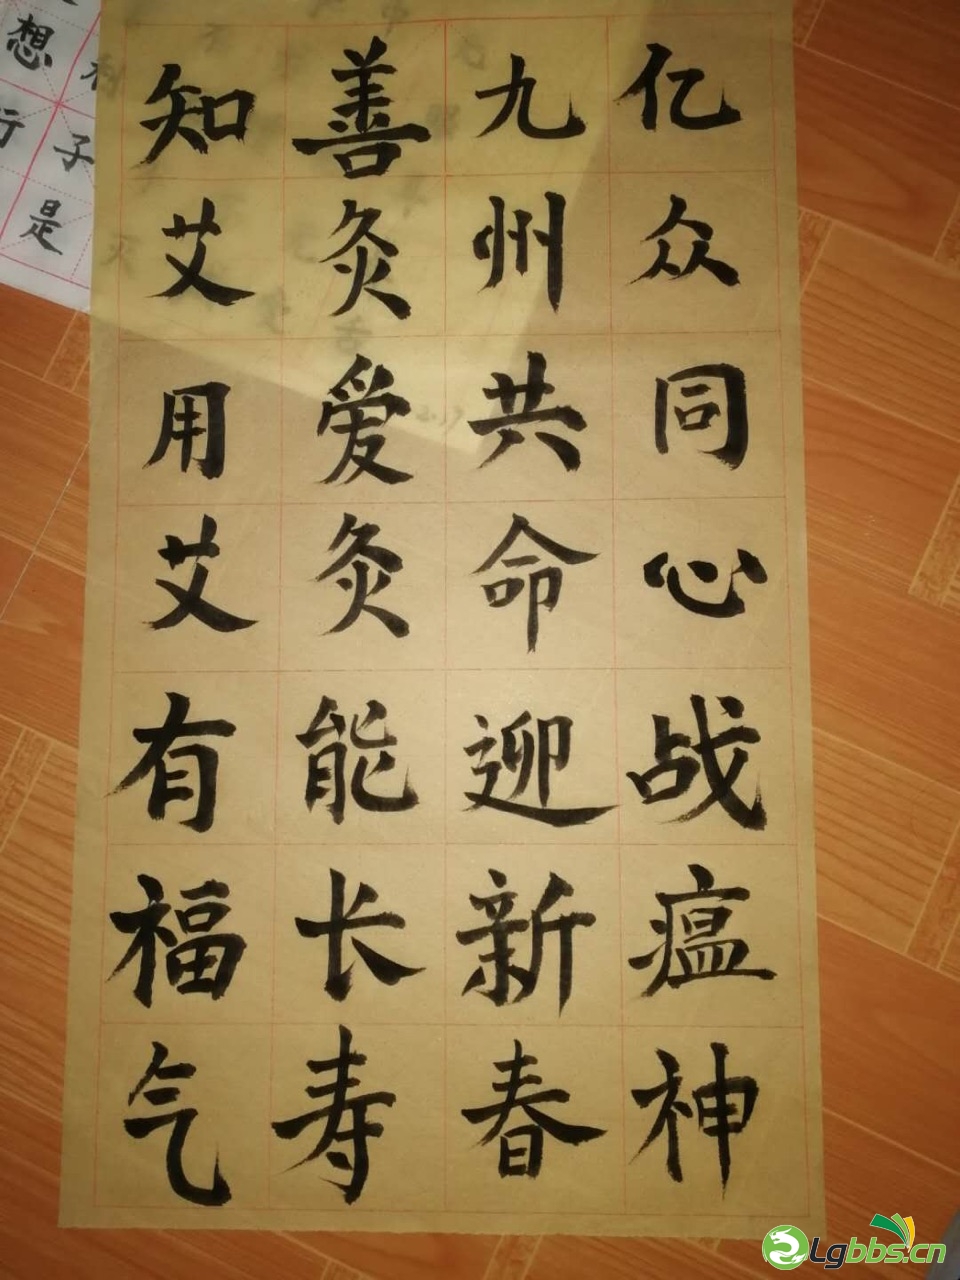 亿众同心战瘟神
九州共命迎新春
善灸爱灸能长寿
知艾用艾有福气
想
行子
是
Lgbbs.cn